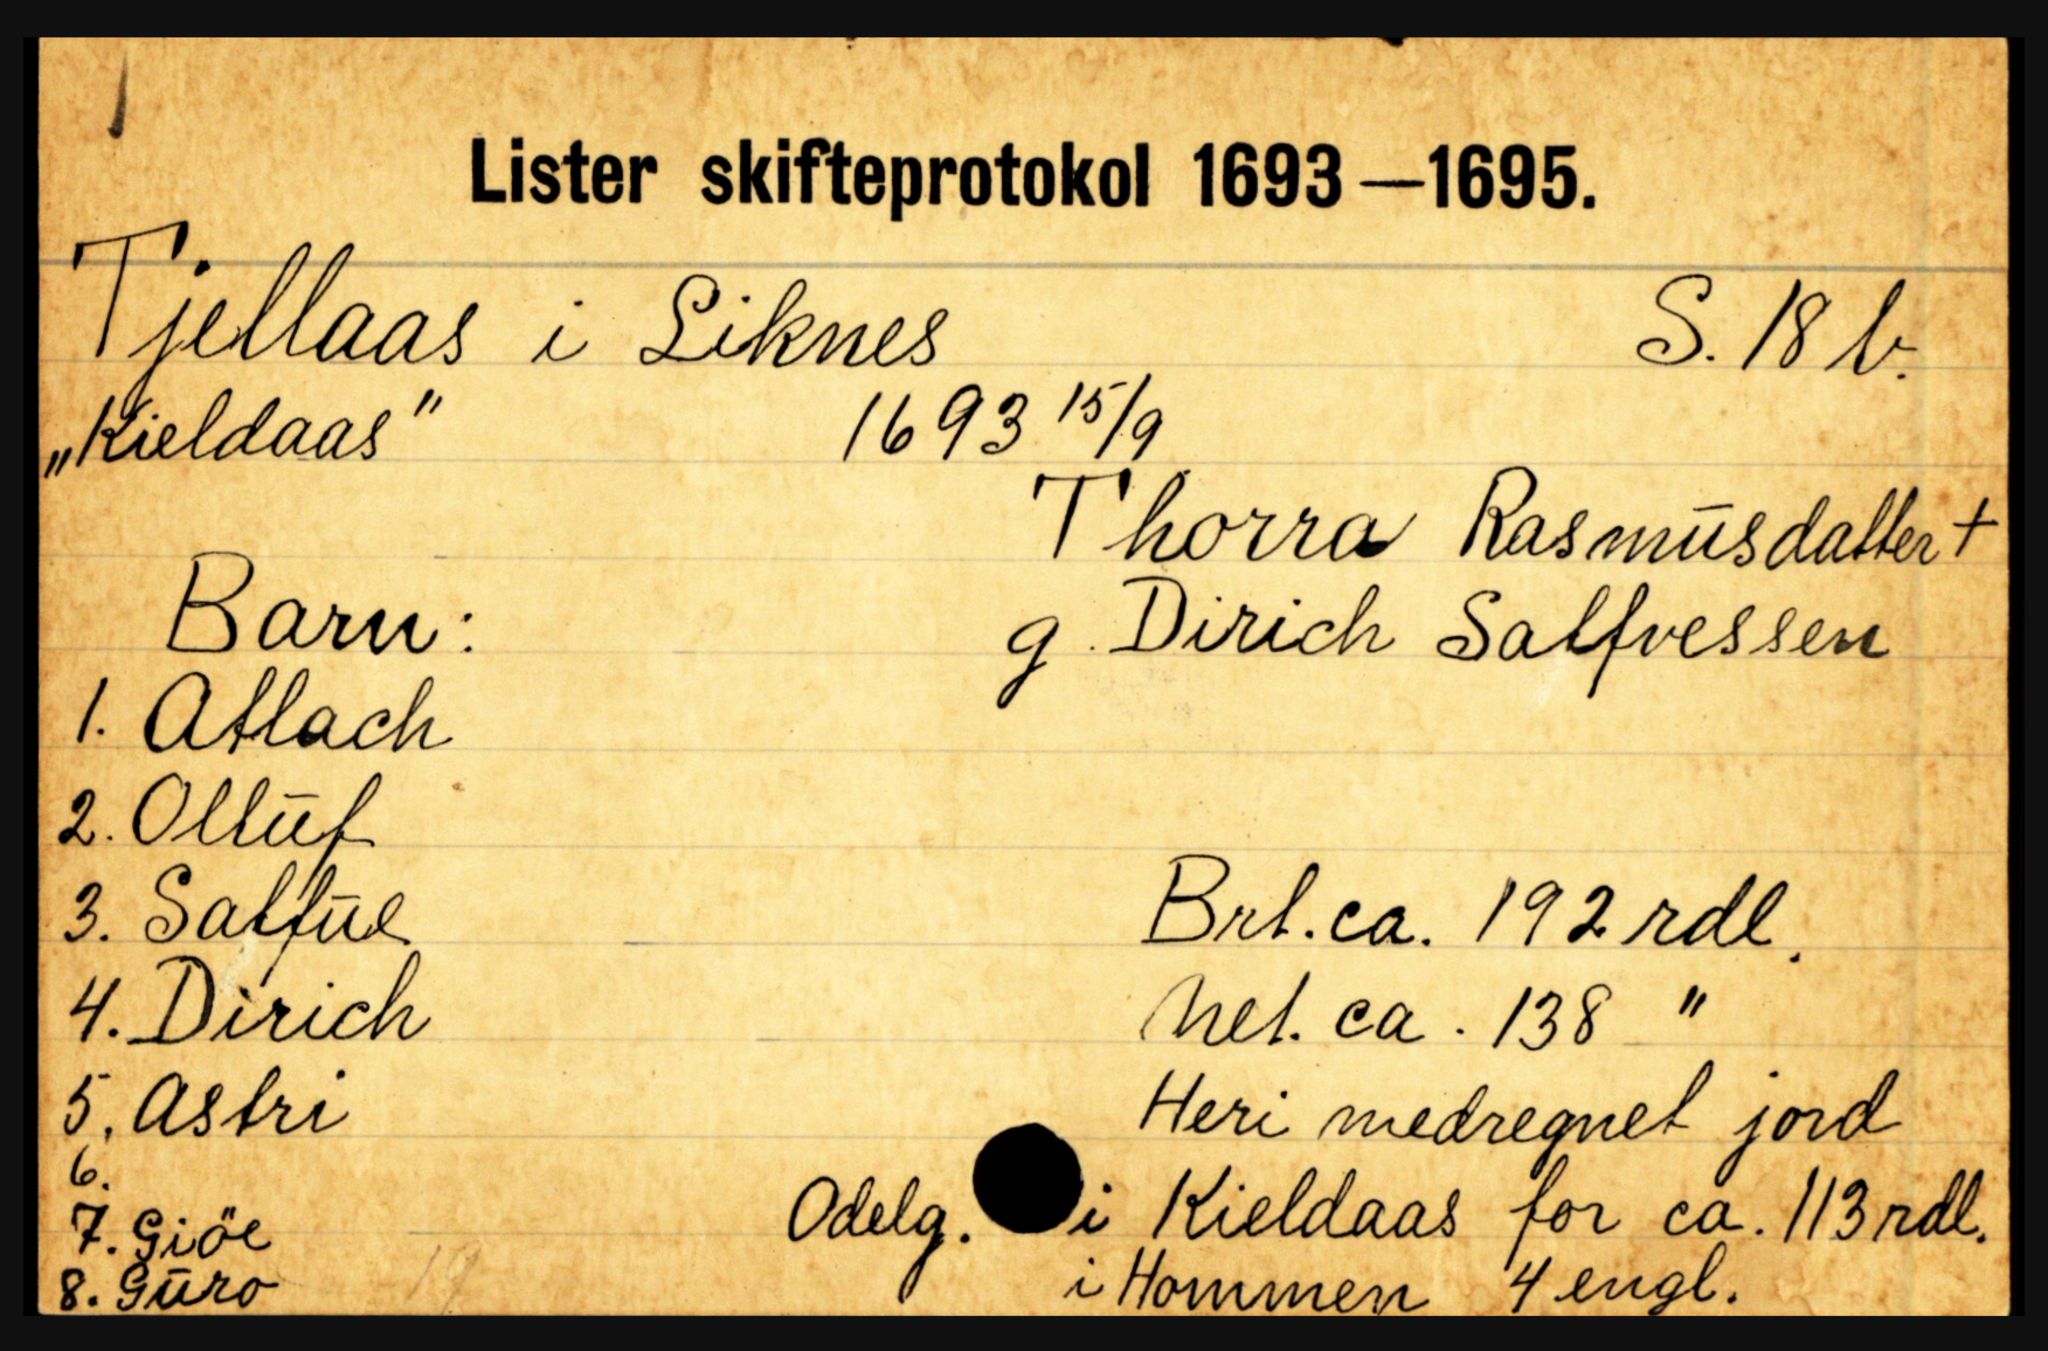 Lister skifteprotokol 1693—1695.
Tjellaas i Liknes S. 18 b.
„Kieldaas" 1693 15/9
Thorra Rasmusdatter +
Barn: g. Dirich Salfvessen
1. Atlach
2. Olluf
3. Salfue Brt. ca. 192 rdl.
4. Dirich Net. ca. 138 "
5. Astri Heri medregnet jord
6.
7. Giöe Odelg. i Kieldaas for ca. 113 rdl.
8. Guro i Hommen 4 engl.